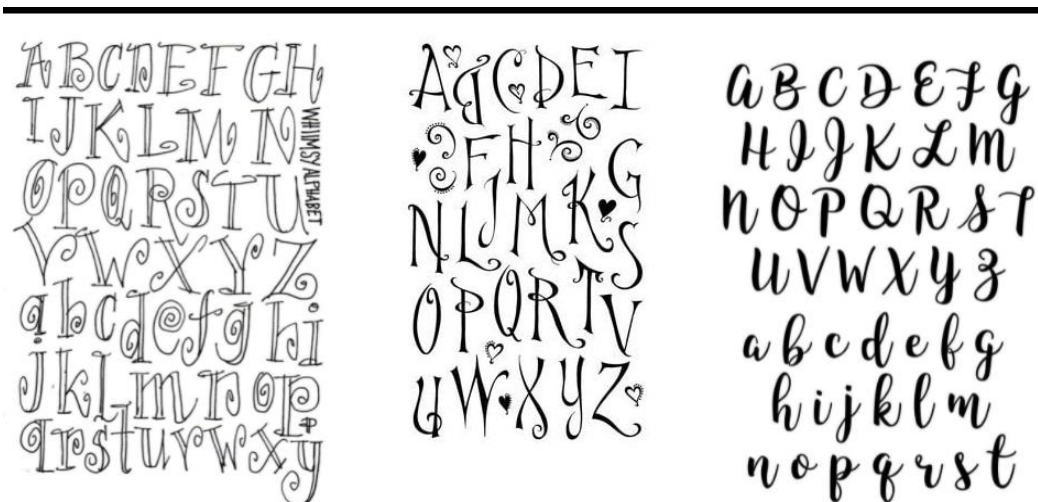 A B C D E F G H
I J K L M N
O P Q R S T U
V W X Y Z
a b c d e f g h i
j k l m n o p
q r s t u v w x y
WHIMSY ALPHABET
A B C D E I
F H G
N L J M K S
O P Q R T V
U W X Y Z
A B C D E F G
H I J K L M
N O P Q R S T
U V W X Y Z
a b c d e f g
h i j k l m
n o p q r s t